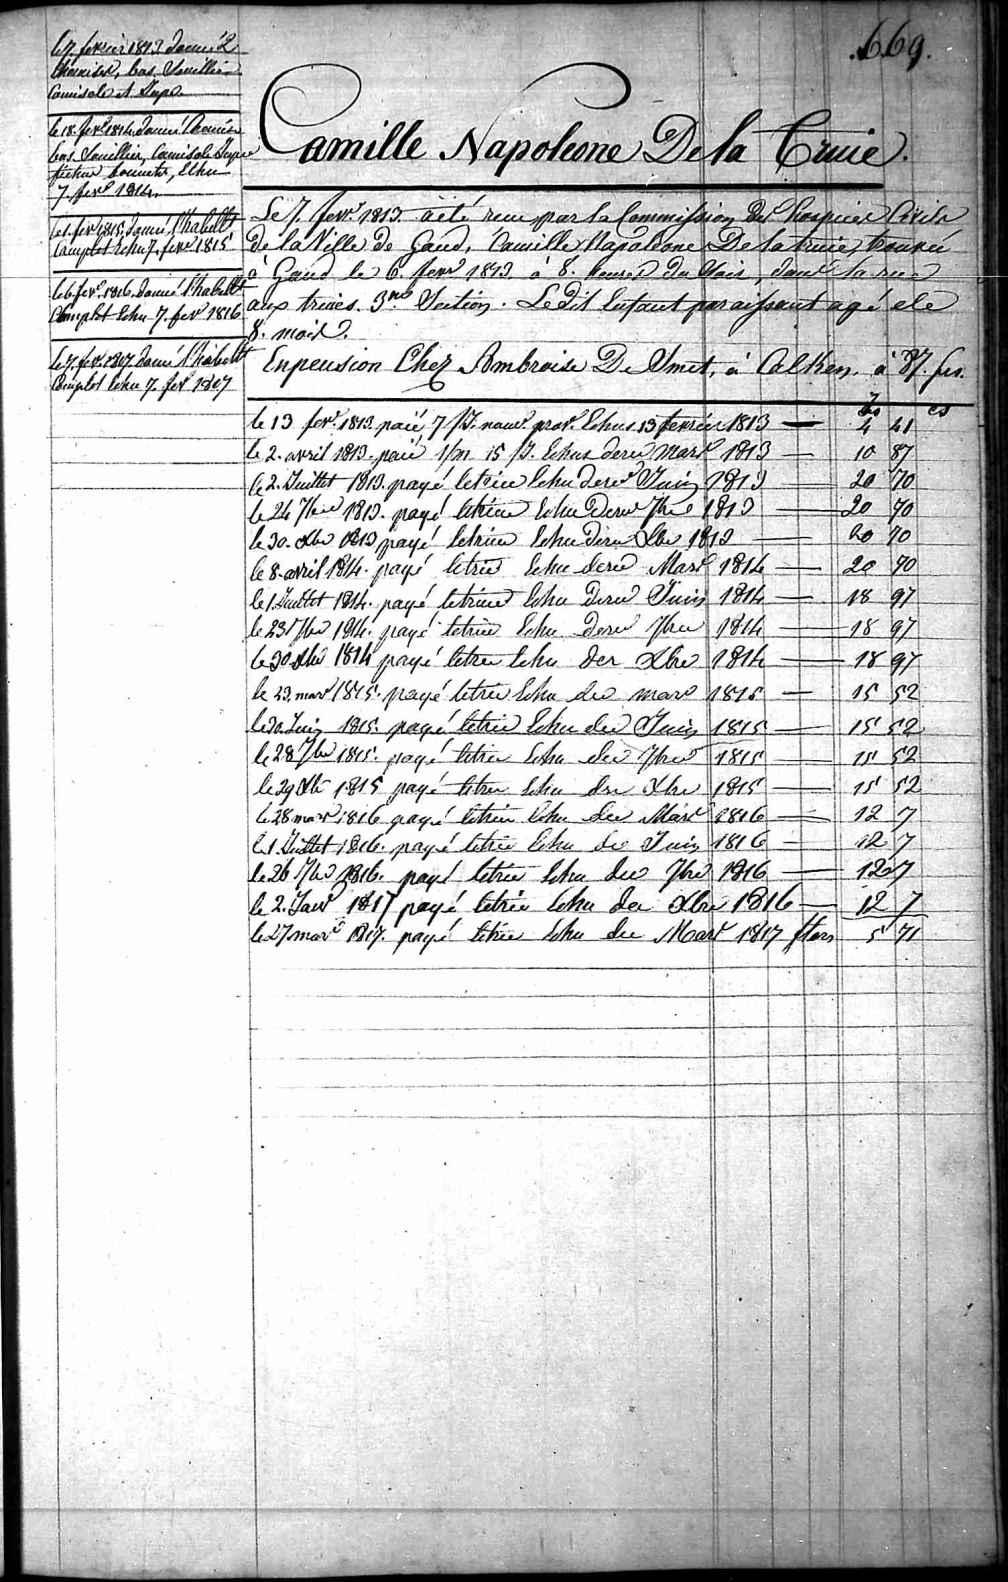 669.
le 7. fevrier 1813 donné 2
Chemises, bas, Souillier
Camisole et Jupe.
le 18. fevr 1814 donné Chemise
bas Souillier, Camisole Jupe
fichu bonnets, Echu
7. fevr 1814.
le 1. fevr 1815 donné l'habillt
Complet Echu 7. fevr 1815
le 6. fevr 1816 donné l'habillt
Complet Echu 7. fevr 1816
le 7. fevr 1817 donné l'habillt
Complet Echu 7. fevr 1817
Camille Napoleone De la Truie.
Le 7. fevr 1813. a été reçu par la Commission Des hospices Civils
de la Ville de Gand, Camille Napoleone De la truie, trouvée
à Gand le 6. fevr 1813 à 8. heures du Soir, dans la rue
aux truies. 3me Section. Le Dit Enfant paraissant agé de
8. mois.
En pension Chez Ambroise De Smet, à Calken. à 87. frs.
le 13 fevr 1813. paié 7 /J. nour. prov. Echus 13 fevrier 1813 — 4 41
le 2. avril 1813. paié 1/m 15 /J. Echus dern Mars 1813 — 10 87
le 2. Juillet 1813. payé letrie Echu dern Juin 1813 — 20 70
le 24 7bre 1813. payé letrie Echu dern 7bre 1813 — 20 70
le 30. Xbre 1813 payé letrie Echu dern Xbre 1813 — 20 70
le 8. avril 1814. payé letrie Echu dern Mars 1814 — 20 70
le 1. Juillet 1814. payé letrie Echu dern Juin 1814 — 18 97
le 23 7bre 1814. payé letrie Echu dern 7bre 1814 — 18 97
le 30 Xbre 1814 payé letrie Echu der Xbre 1814 — 18 97
le 23. mars 1815. payé letrie Echu der mars 1815 — 15 52
le 30. Juin 1815. payé letrie Echu der Juin 1815 — 15 52
le 28 7bre 1815. payé letrie Echu der 7bre 1815 — 15 52
le 29 Xbre 1815 payé letrie Echu der Xbre 1815 — 15 52
le 28 mars 1816 payé letrie Echu der Mars 1816 — 12 7
le 1. Juillet 1816. payé letrie Echu de Juin 1816 — 12 7
le 26 7bre 1816. payé letrie Echu der 7bre 1816 — 12 7
le 2. Janr 1817 payé letrie Echu der Xbre 1816 — 12 7
le 27 mars 1817. payé letrie Echu der Mars 1817 flors 5 71